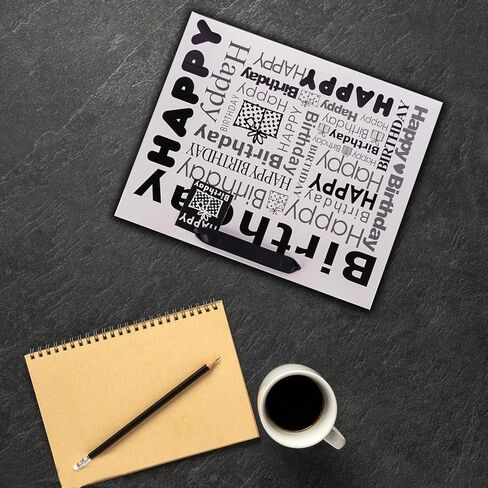 HAPPY
Happy
HAPPY
HAPPY
Birthday
HAPPY
BIRTHDAY
Happy
Birthday
Happy
Birthday
HAPPY
Birthday
HAPPY BIRTHDAY
Birthday
BIRTHDAY
Happy
Birthday
HAPPY
Birthday
Happy
Birthday
BIRTHDAY
Happy Birthday
Happy
Birthday
HAPPY
Birthday